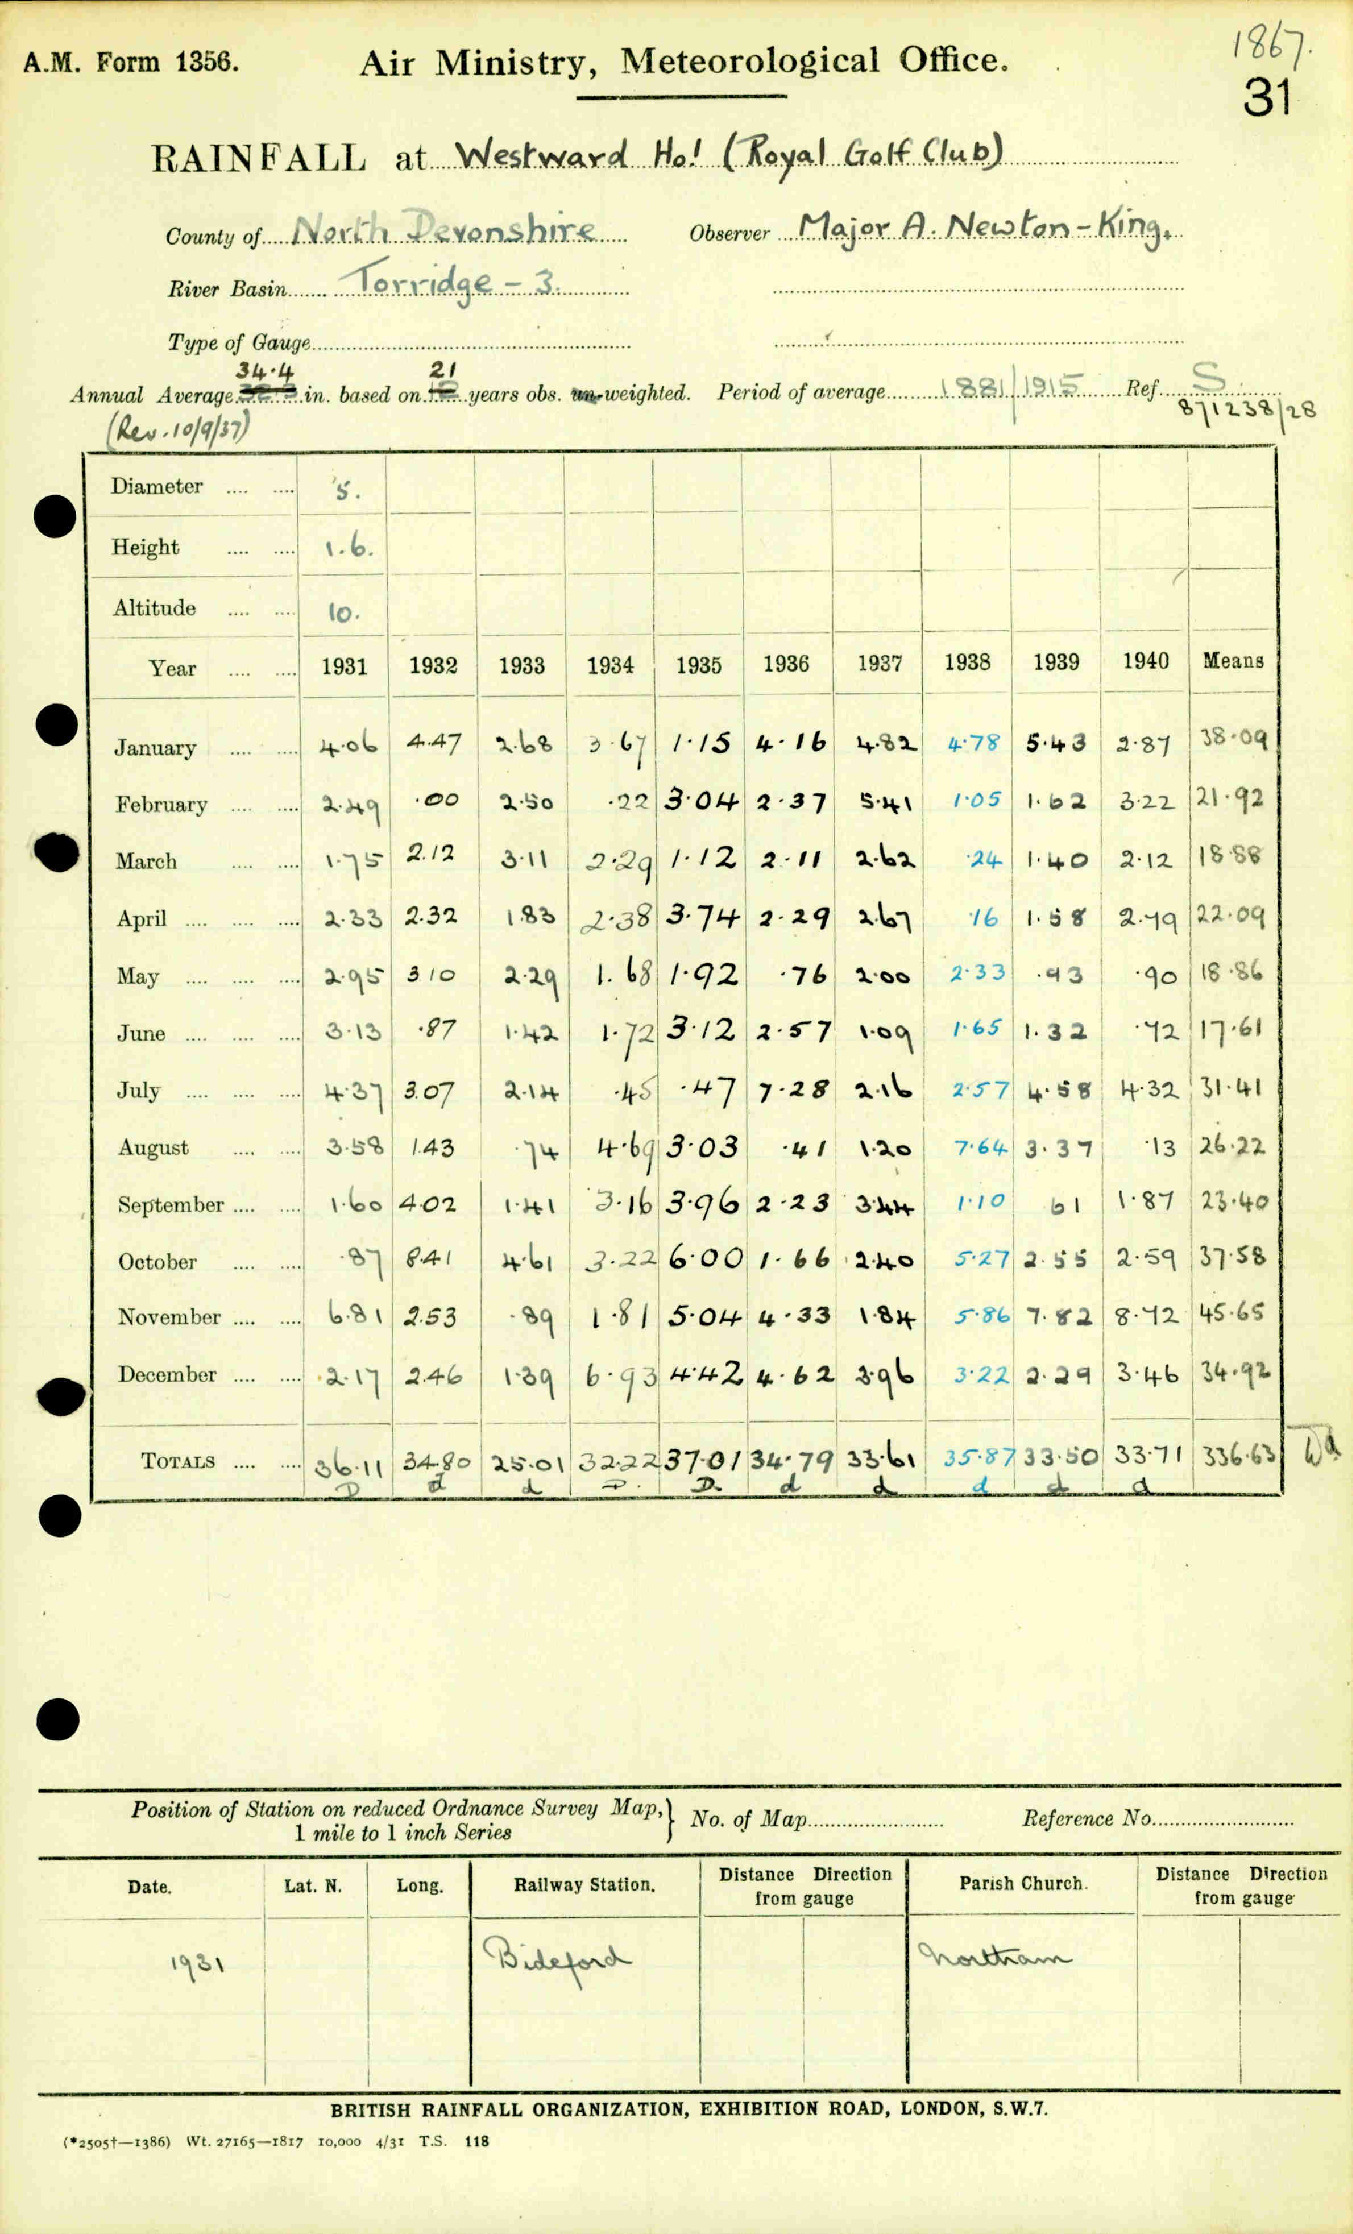 1867.
A.M. Form 1356. Air Ministry, Meteorological Office.
31
RAINFALL at Westward Ho! (Royal Golf Club)
County of North Devonshire Observer Major A. Newton-King.
River Basin Torridge - 3.
Type of Gauge
34.4 21
Annual Average in. based on years obs. un-weighted. Period of average 1881/1915 Ref. S
(Rev. 10/9/37) 871238/28
Diameter 5.
Height 1.6.
Altitude 10.
Year 1931 1932 1933 1934 1935 1936 1937 1938 1939 1940 Means
January 4.06 4.47 2.68 3.67 1.15 4.16 4.82 4.78 5.43 2.87 38.09
February 2.49 .00 2.50 .22 3.04 2.37 5.41 1.05 1.62 3.22 21.92
March 1.75 2.12 3.11 2.29 1.12 2.11 2.62 .24 1.40 2.12 18.88
April 2.33 2.32 1.83 2.38 3.74 2.29 2.67 .16 1.58 2.79 22.09
May 2.95 3.10 2.29 1.68 1.92 .76 2.00 2.33 .93 .90 18.86
June 3.13 .87 1.42 1.72 3.12 2.57 1.09 1.65 1.32 .72 17.61
July 4.37 3.07 2.14 .45 .47 7.28 2.16 2.57 4.58 4.32 31.41
August 3.58 1.43 .74 4.69 3.03 .41 1.20 7.64 3.37 .13 26.22
September 1.60 4.02 1.41 3.16 3.96 2.23 3.44 1.10 61 1.87 23.40
October .87 8.41 4.61 3.22 6.00 1.66 2.40 5.27 2.55 2.59 37.58
November 6.81 2.53 .89 1.81 5.04 4.33 1.84 5.86 7.82 8.72 45.65
December 2.17 2.46 1.39 6.93 4.42 4.62 3.96 3.22 2.29 3.46 34.92
TOTALS 36.11 34.80 25.01 32.22 37.01 34.79 33.61 35.87 33.50 33.71 336.63
D d d D. D. d d d d d
Position of Station on reduced Ordnance Survey Map, } No. of Map Reference No.
1 mile to 1 inch Series
Date. Lat. N. Long. Railway Station. Distance Direction from gauge Parish Church. Distance Direction from gauge
1931 Bideford Northam
BRITISH RAINFALL ORGANIZATION, EXHIBITION ROAD, LONDON, S.W.7.
(*2505†—1386) Wt. 27165—1817 10,000 4/31 T.S. 118